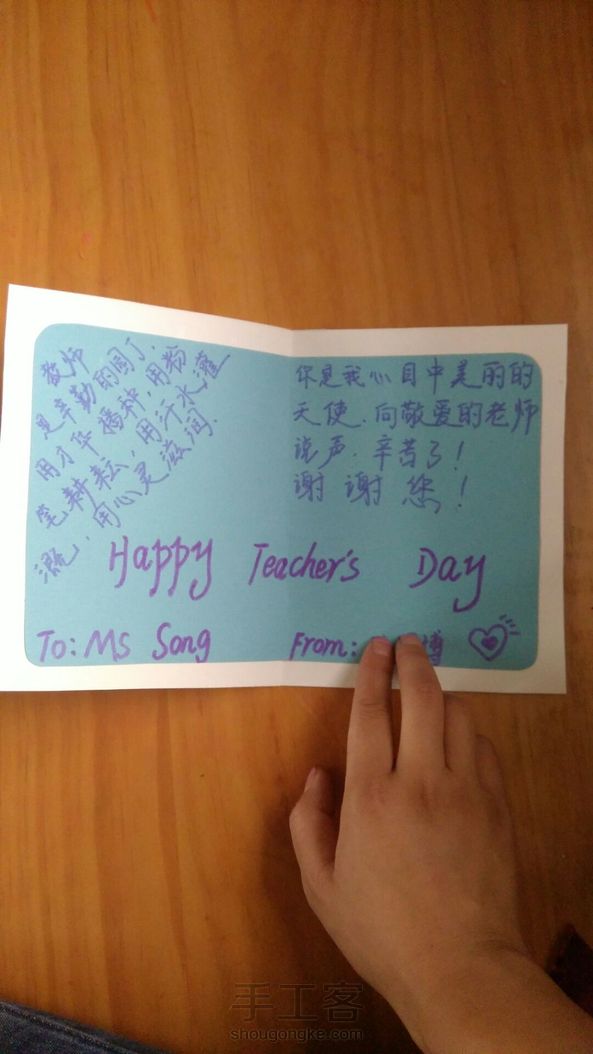 教师
是辛勤的园丁，
用才华播种，用粉
笔耕耘，用汗水灌
溉，用心灵滋润.
你是我心目中美丽的
天使.向敬爱的老师
说声.辛苦了！
谢谢您！
Happy Teacher's Day
To: Ms Song
From: 博
手工客
shougongke.com